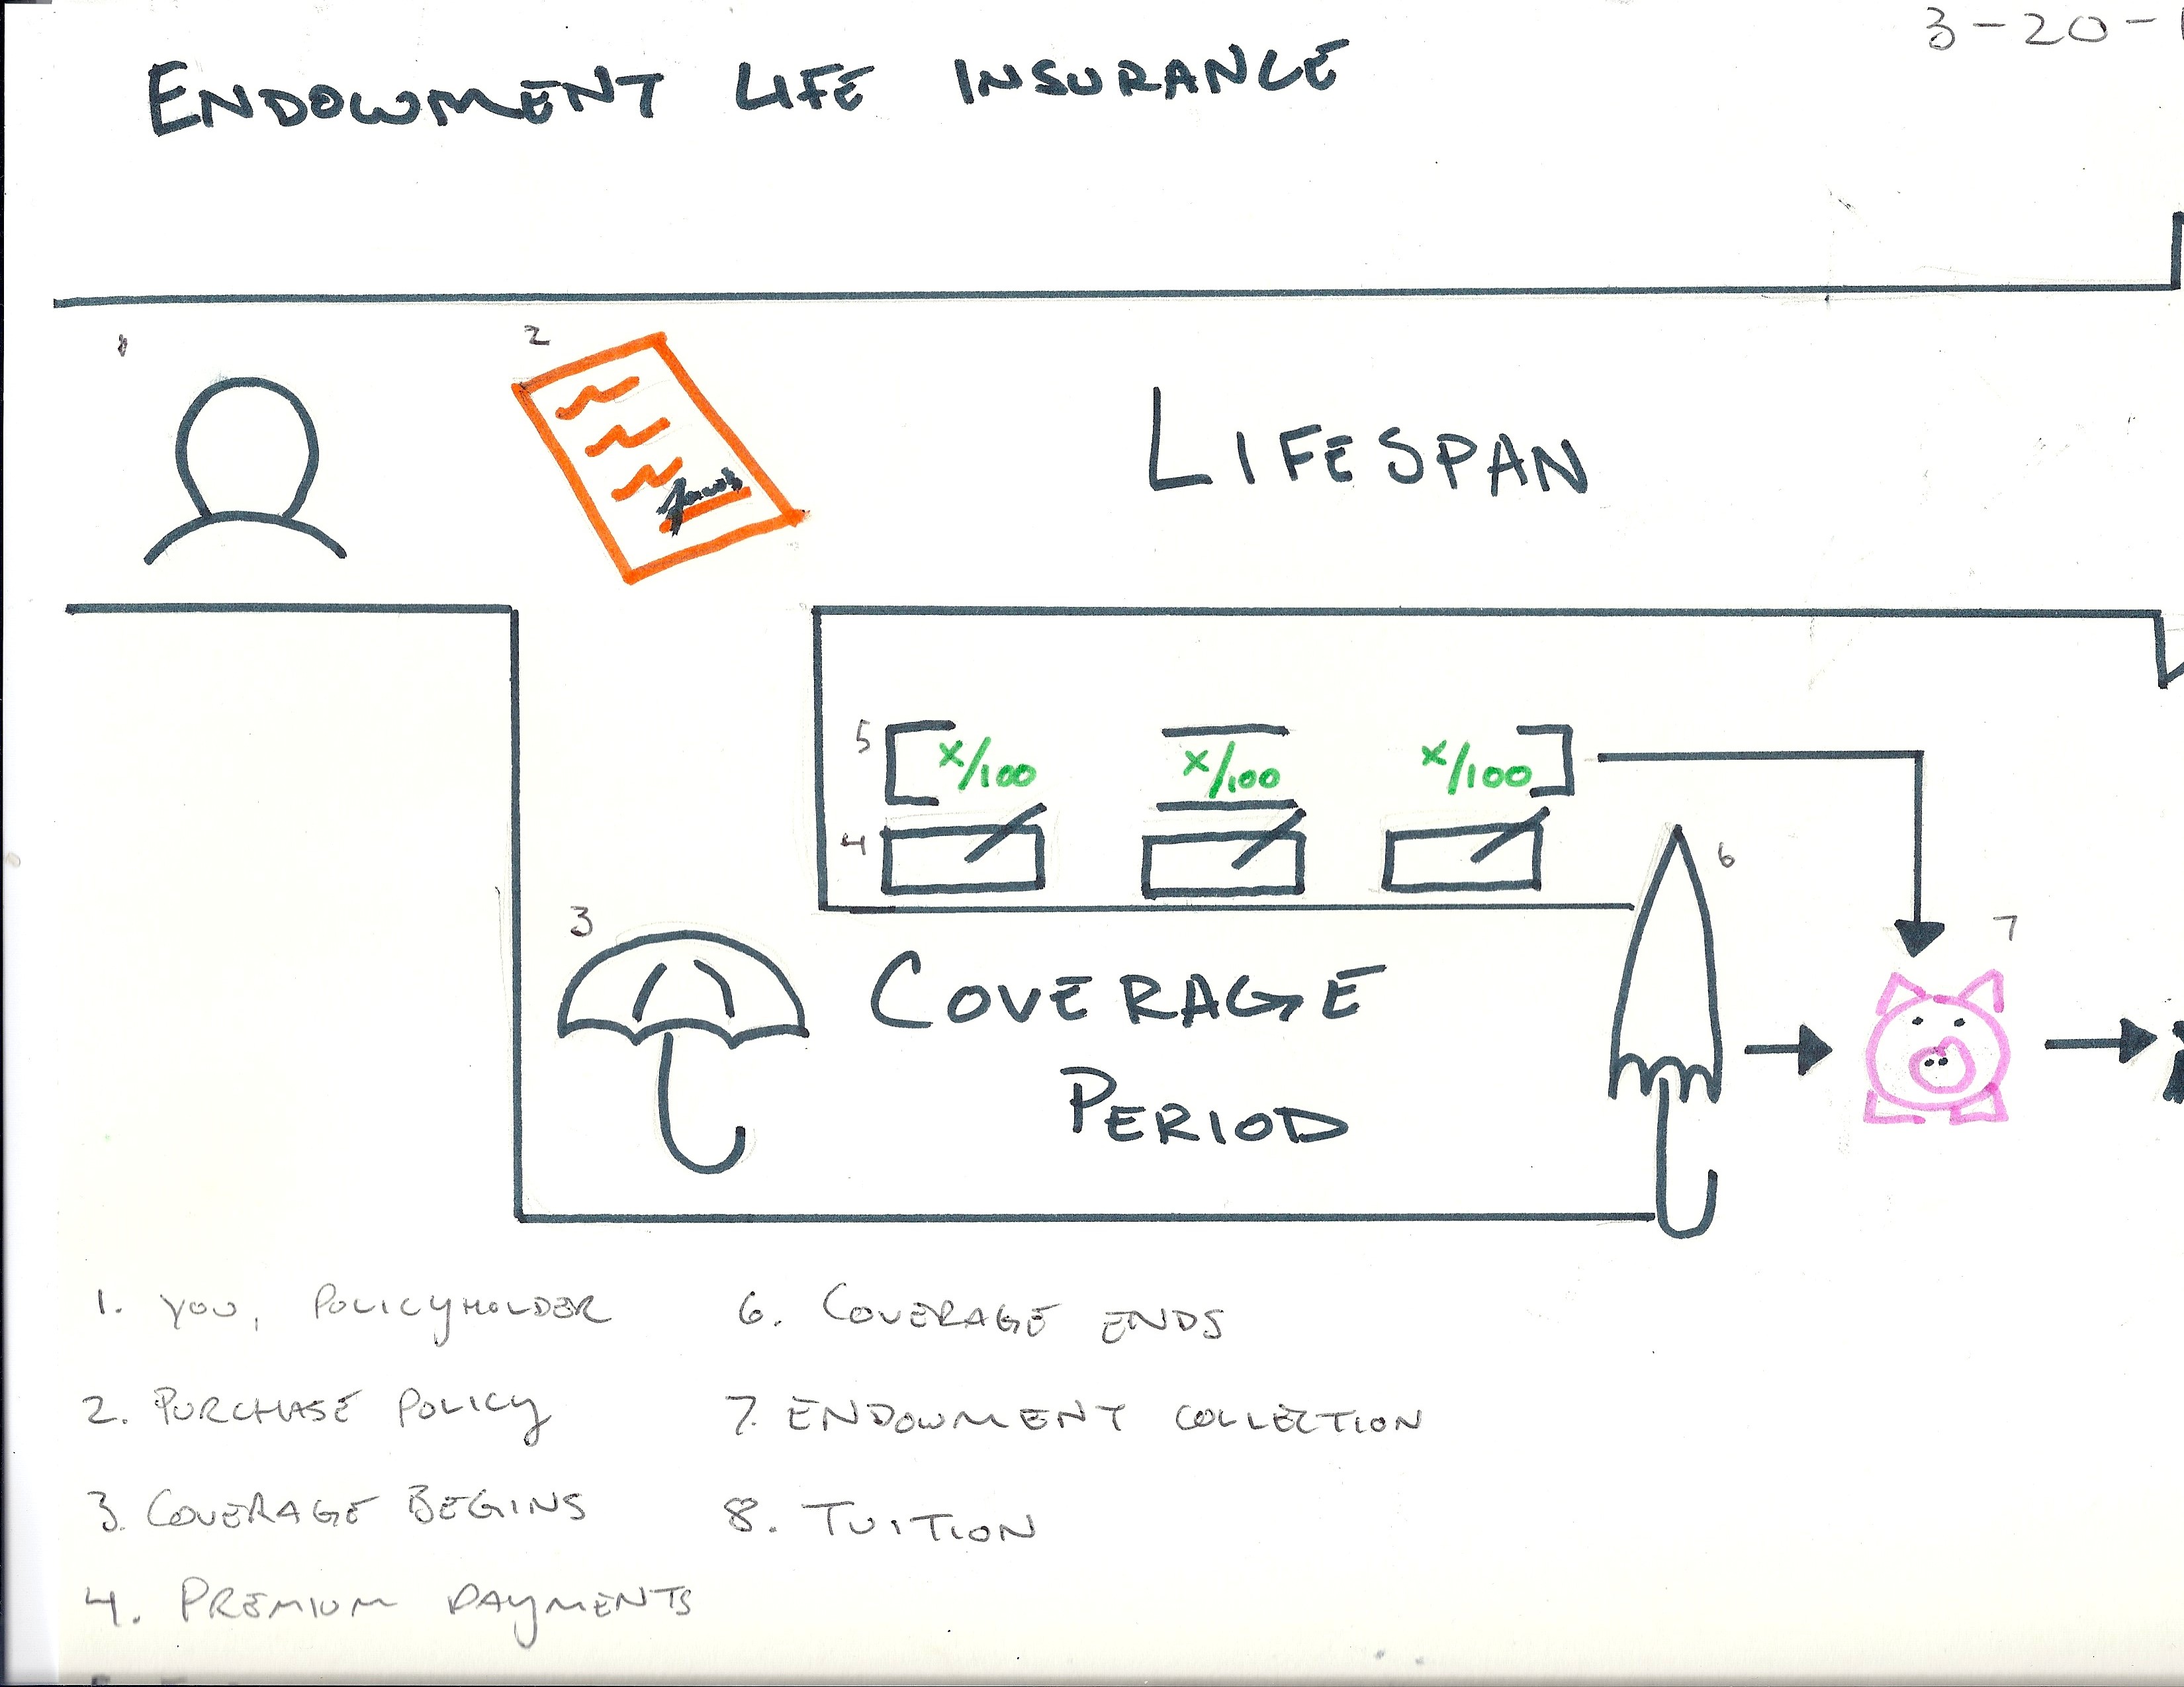 3-20-1
ENDOWMENT LIFE INSURANCE
1
2
LIFESPAN
5
X/100 X/100 X/100
4
6
3
7
COVERAGE
PERIOD
1. YOU, POLICYHOLDER
2. PURCHASE POLICY
3. COVERAGE BEGINS
4. PREMIUM PAYMENTS
6. COVERAGE ENDS
7. ENDOWMENT COLLECTION
8. TUITION